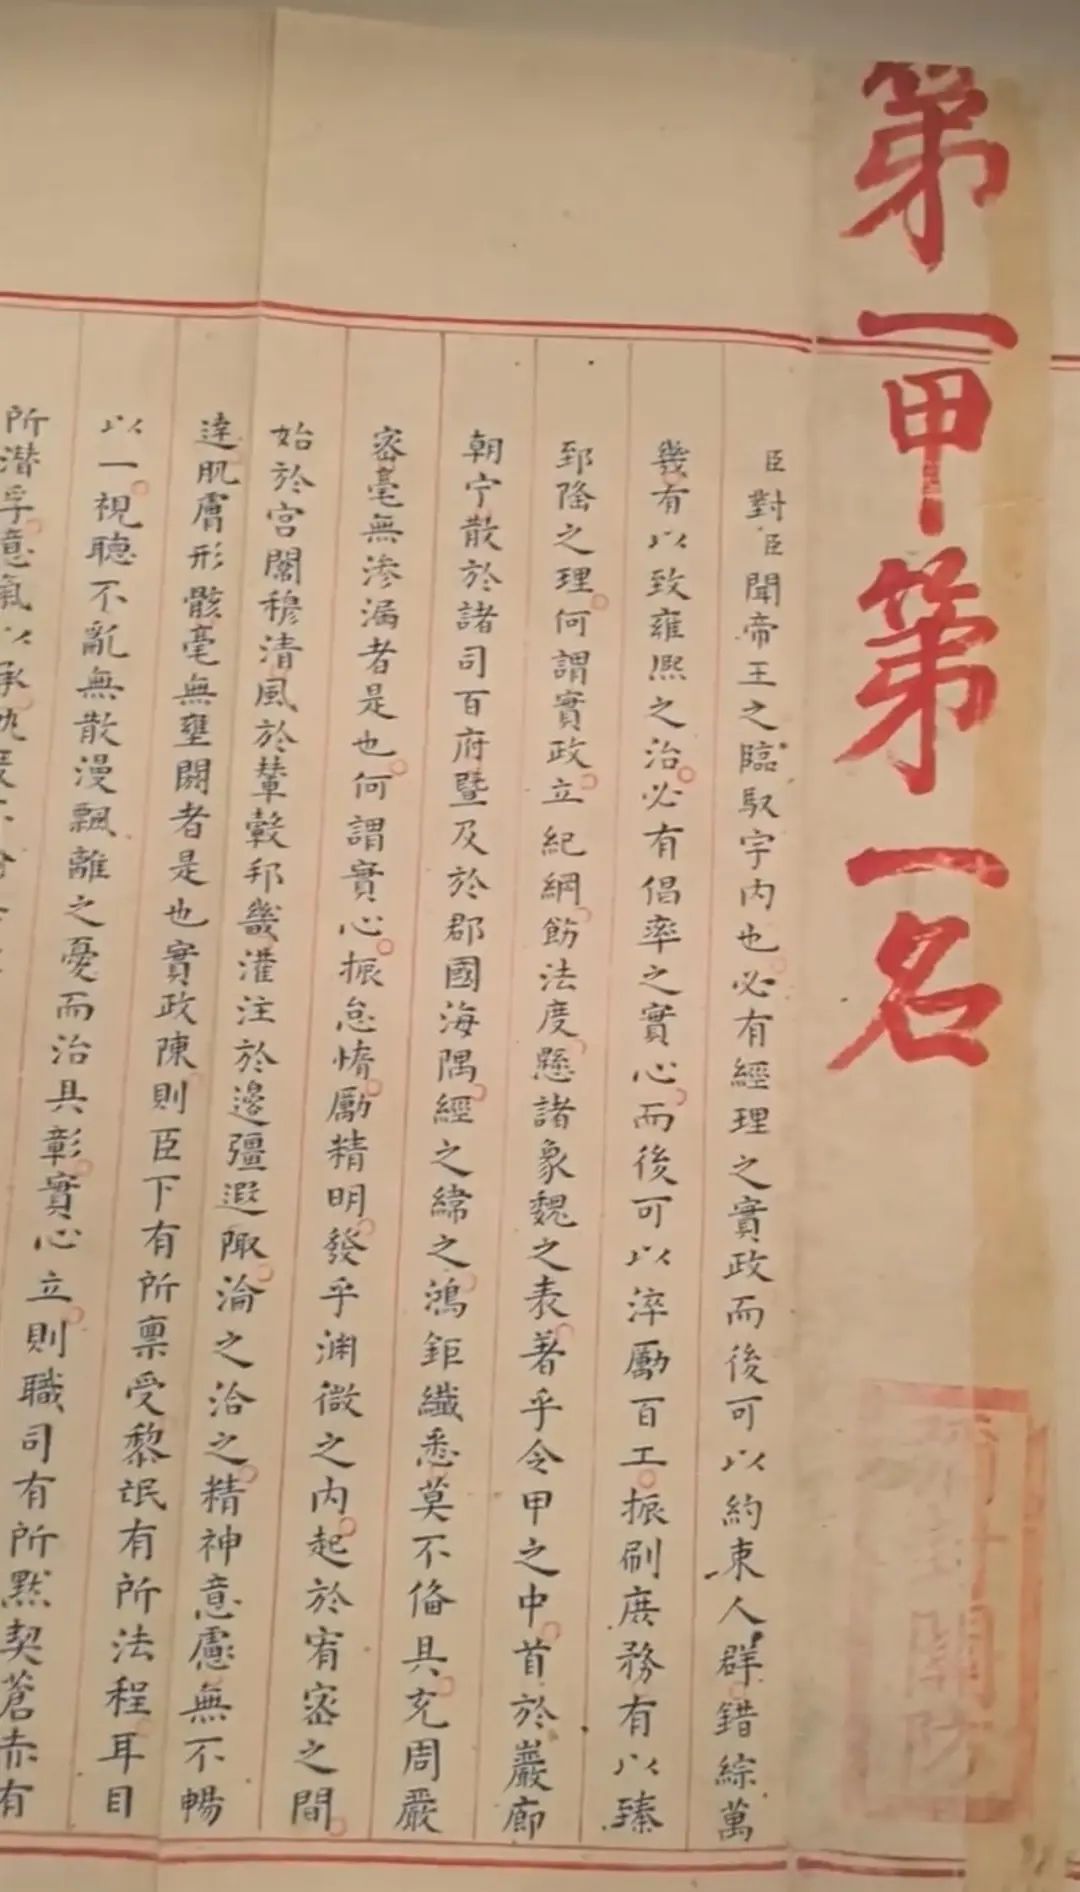 第一甲第一名
臣對臣聞帝王之臨馭宇內也必有經理之實政而後可以約束人群錯綜萬
幾有以致雍熈之治必有倡率之實心而後可以淬勵百工振刷庶務有以臻
郅隆之理何謂實政立紀綱飭法度懸諸象魏之表著乎令甲之中首於巖廊
朝宁散於諸司百府暨及於郡國海隅經之緯之鴻鉅纖悉莫不偹具充周嚴
密毫無滲漏者是也何謂實心振怠惰勵精明發乎淵微之內起於宥密之間
始於宮闈穆清風於輦轂邦畿灌注於邊疆遐陬淪之洽之精神意慮無不暢
達肌膚形骸毫無壅閼者是也實政陳則臣下有所稟受黎氓有所法程耳目
以一視聴不亂無散漫飄離之憂而治具彰實心立則職司有所默契蒼赤有
所潛孚意氣以承
關防